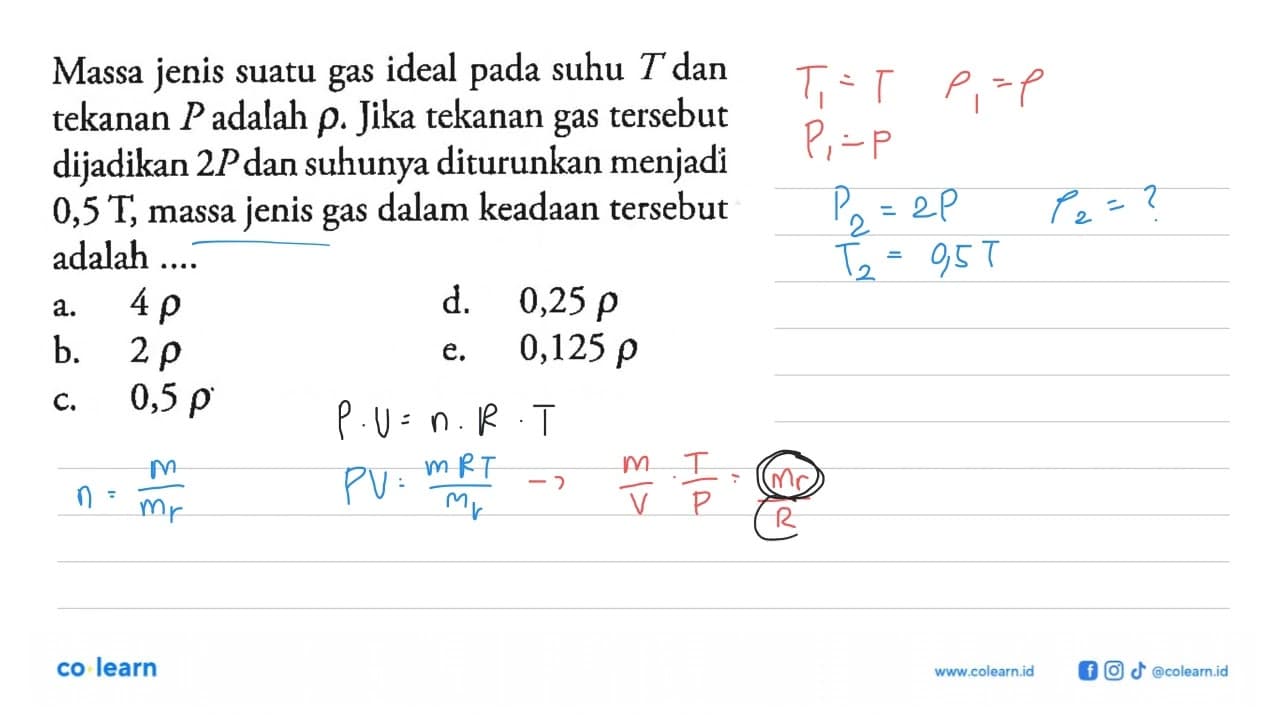 Massa jenis suatu gas ideal pada suhu T dan
tekanan P adalah ρ. Jika tekanan gas tersebut
dijadikan 2P dan suhunya diturunkan menjadi
0,5 T, massa jenis gas dalam keadaan tersebut
adalah ....
a. 4 ρ d. 0,25 ρ
b. 2 ρ e. 0,125 ρ
c. 0,5 ρ
T₁ = T ρ₁ = ρ
P₁ = P
P₂ = 2P ρ₂ = ?
T₂ = 0,5 T
P . V = n . R . T
n = m/Mr PV = mRT/Mr -> m/V . T/P = Mr/R
co learn
www.colearn.id @colearn.id